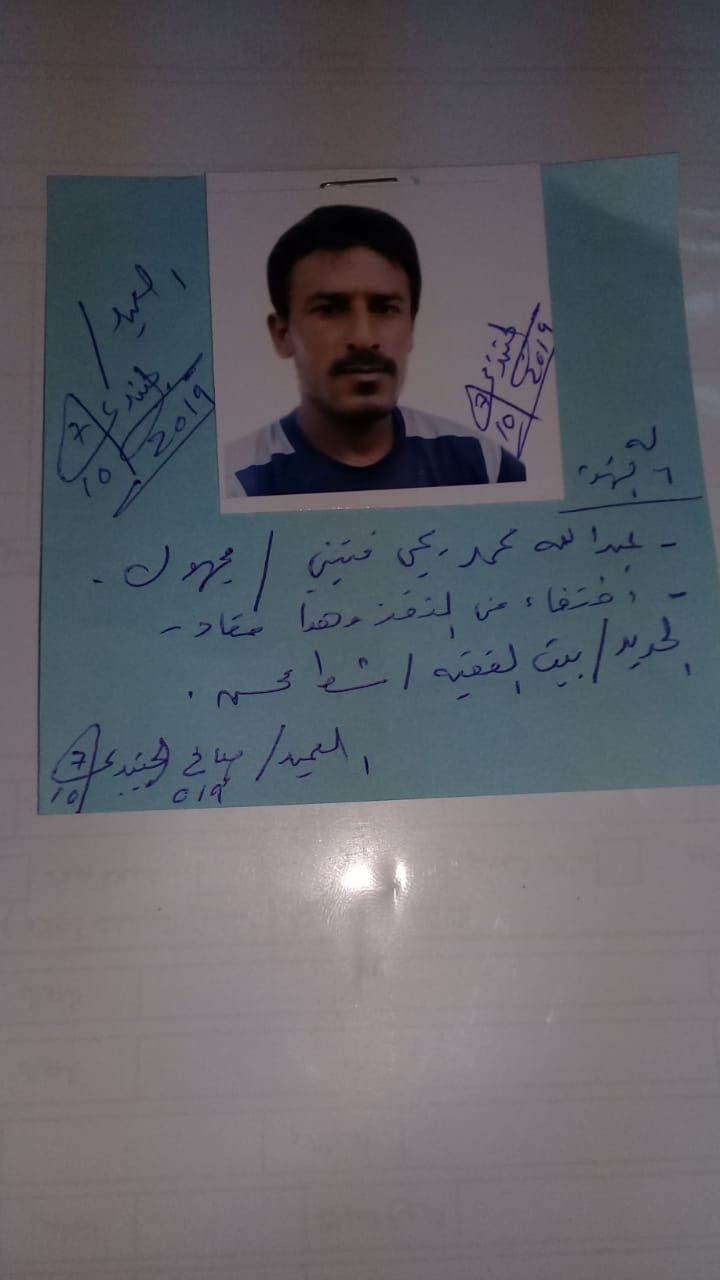 العميد/
الجندي
7
10
2019
الجندي
7
10
2019
- عبدالله محمد يحيى فتيني / مجهول .
- اختفاء من المنفذ وهذا
الحديد / بيت الفقيه / شط محسن .
العميد / صالح الجندي 7
10 019